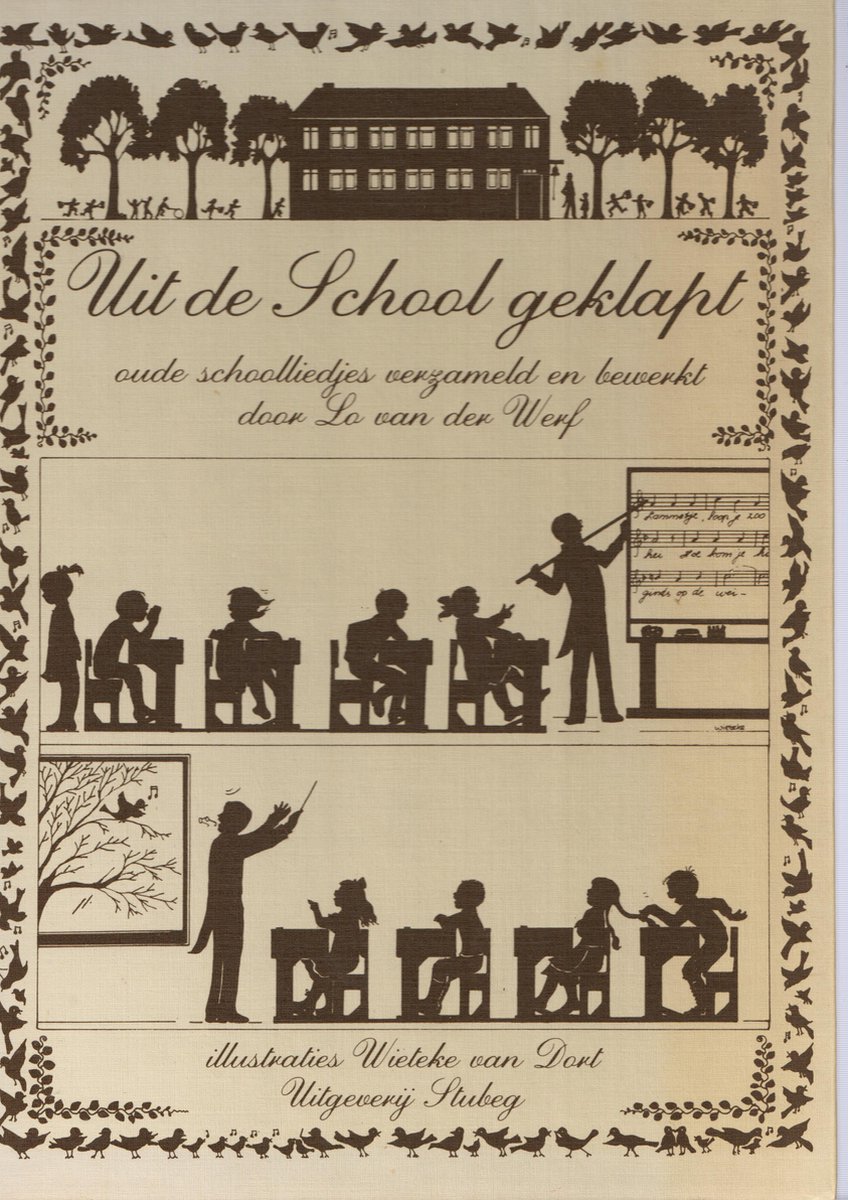 Uit de School geklapt
oude schoolliedjes verzameld en bewerkt
door Lo van der Werf
Lammetje, loop je zoo
hei Hoe kom je hi
ginds op de wei-
WIETEKE
illustraties Wieteke van Dort
Uitgeverij Stubeg